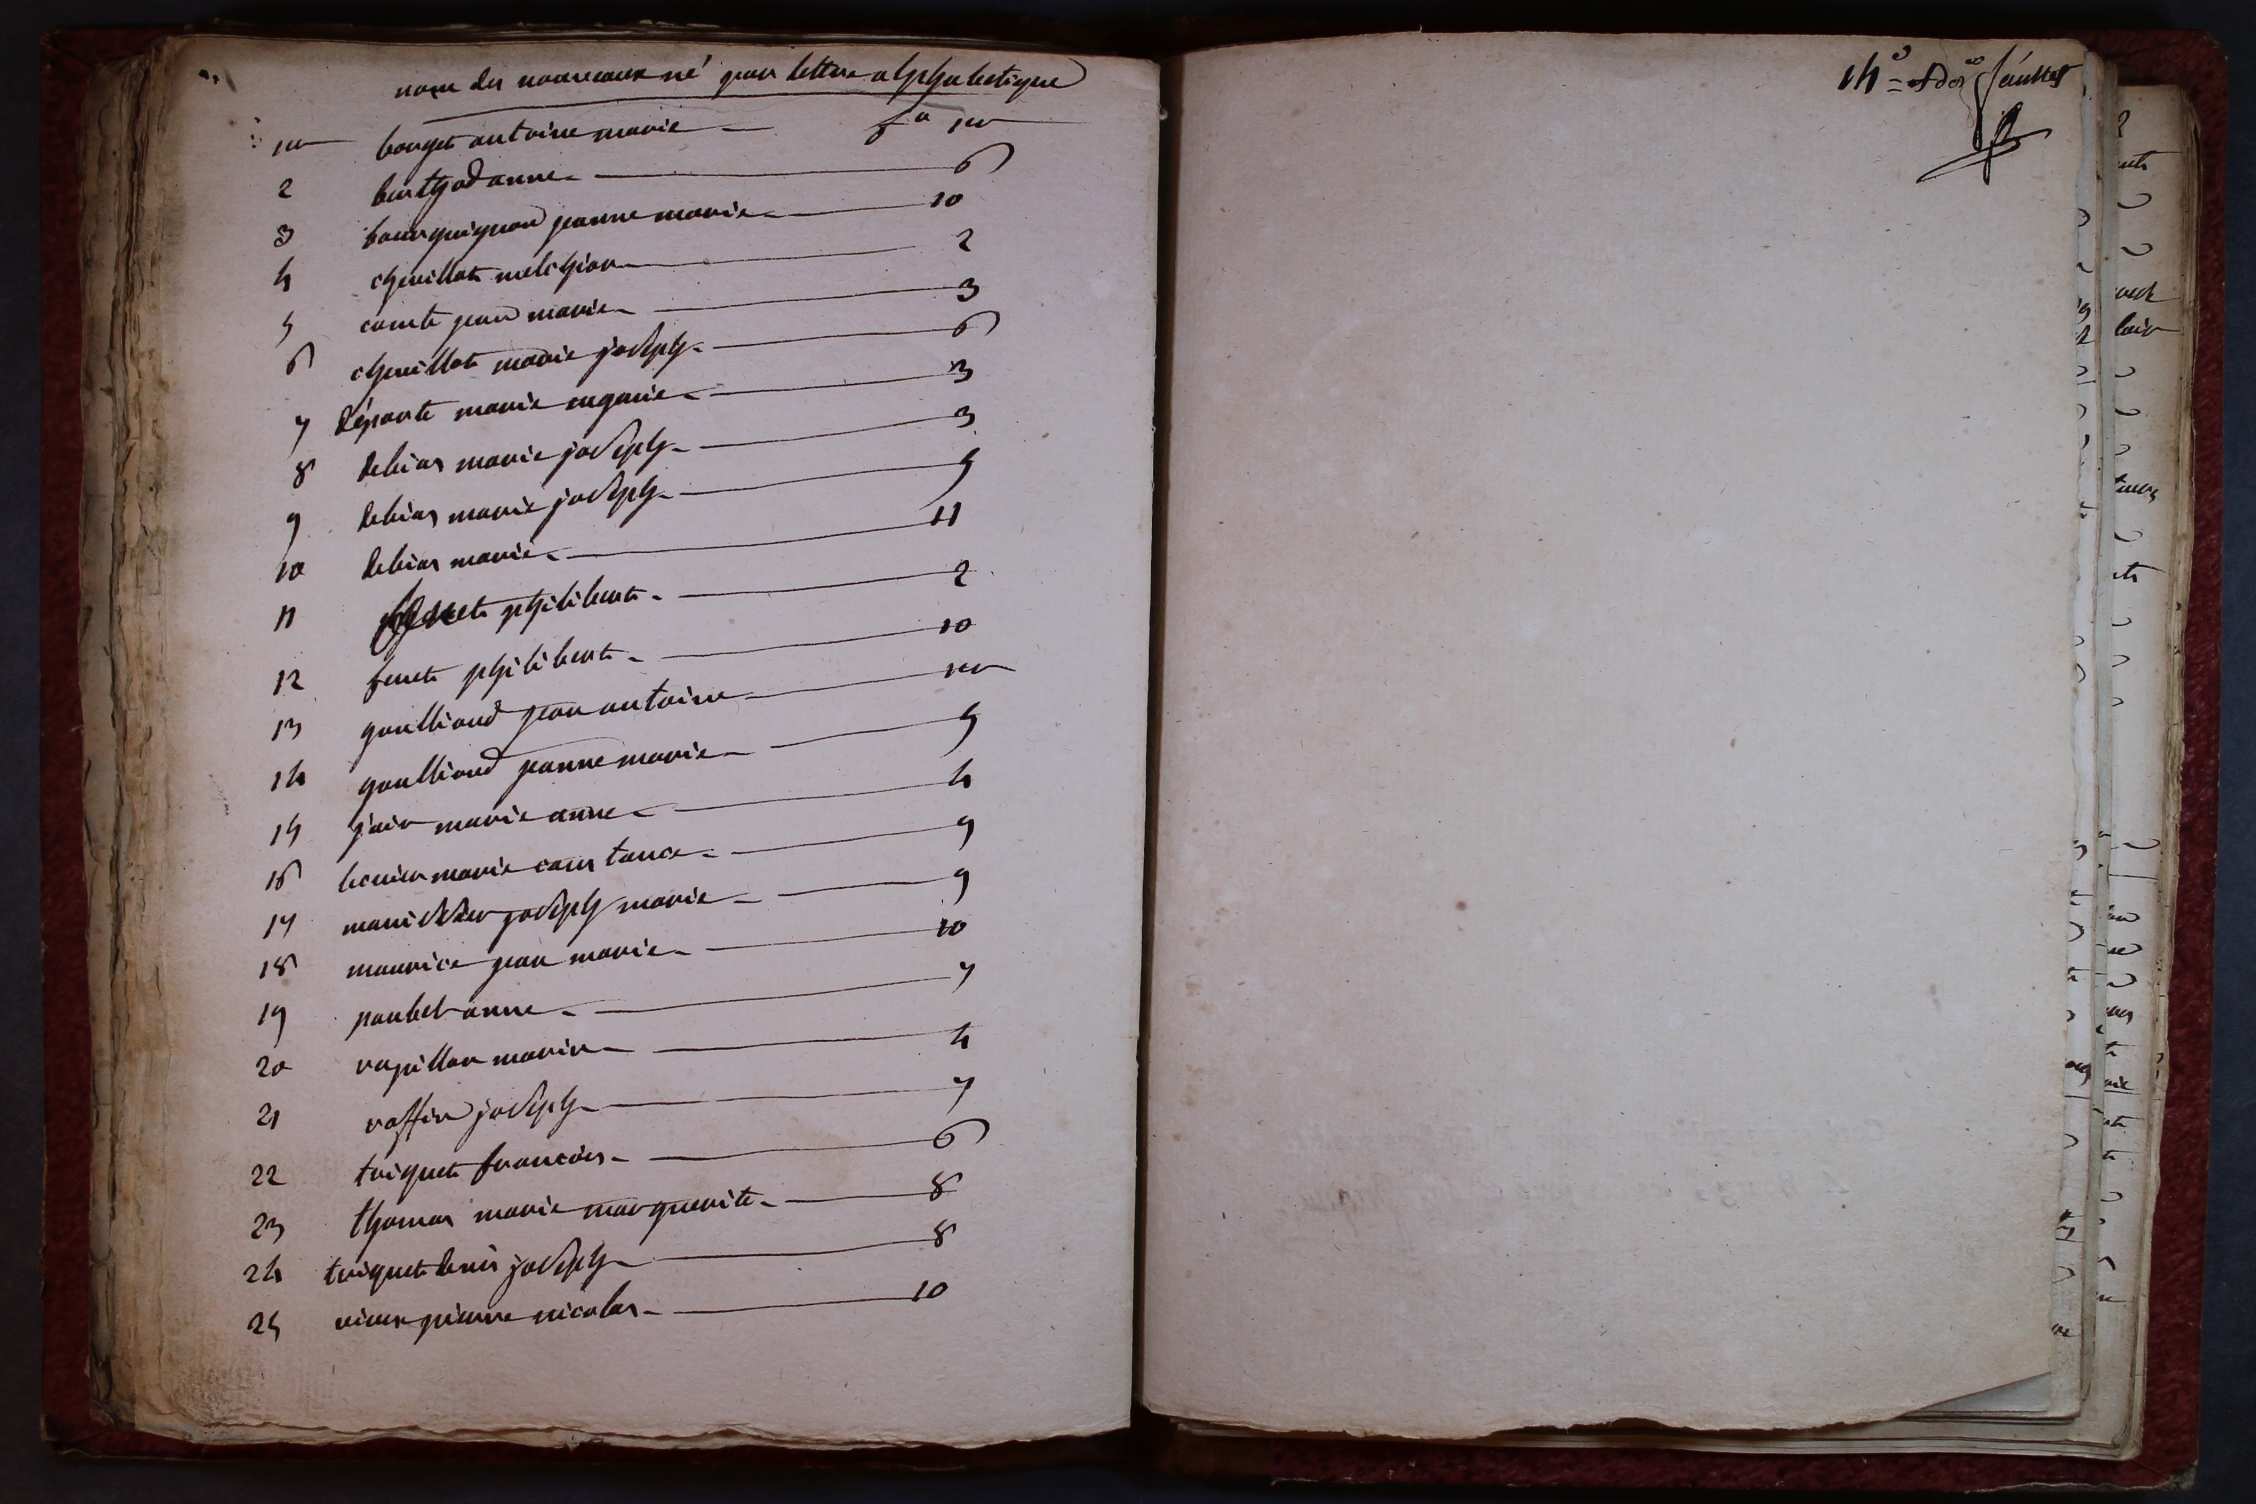 nom des nouveaux né par lettre alphabetique
1er bouget antoine marie f° 1er
2 berthod anne 6
3 bourguignon jeanne marie 10
4 chevillot melchior 2
5 comte jean marie 3
6 chevillot marie joseph 6
7 déporte marie eugenie 3
8 debias marie joseph 3
9 debias marie joseph 5
10 debias marie 11
11 philibert 2
12 feuet philibert 10
13 goullioud jean antoine 1er
14 goullioud jeanne marie 5
15 join marie anne 4
16 marie constance 9
17 manissier joseph marie 9
18 maurice jean marie 10
19 poubet anne 7
20 rapillon marie 4
21 raffin joseph 7
22 triquet francois 6
23 thomas marie marguerite 8
24 triquet denis joseph 8
25 vieux pierre nicolas 10
14